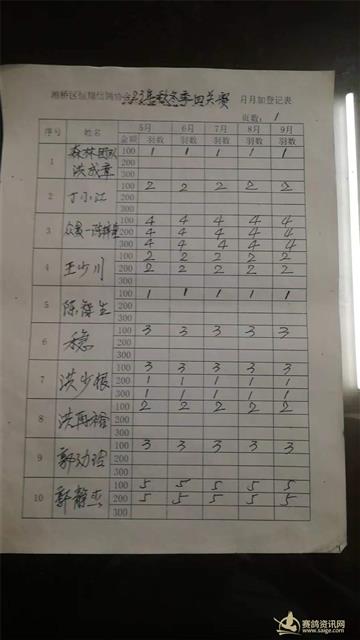 湘桥区恒翔信鸽协会23年秋冬季四关赛 月月加登记表
页数: 1
序号 姓名 金额 5月羽数 6月羽数 7月羽数 8月羽数 9月羽数
1 森林团队 洪武章 100 1 1 1 1 1
200
300
2 丁小江 100 2 2 2 2 2
200
300
3 100 4 4 4 4 4
200 4 4 4 4 4
300 4 4 4 4 4
4 王少川 100 2 2 2 2 2
200 2 2 2 2 2
300
5 100 1 1 1 1 1
200
300
6 稳 100 3 3 3 3 3
200
300
7 洪少根 100 3 3 3 3 3
200 1 1 1 1 1
300 1 1 1 1 1
8 100 2 2 2 2 2
200
300
9 100 3 3 3 3 3
200
300
10 100 5 5 5 5 5
200 5 5 5 5 5
300
赛鸽资讯网
www.saige.com